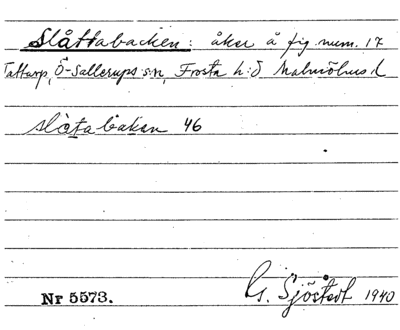 Slåttabacken: åker å fig. num. 17
Tattarp, Ö-Sallerups s:n, Frosta h:d Malmöhus l
slåtabakan 46
Nr 5573.
G. Sjöstedt 1940